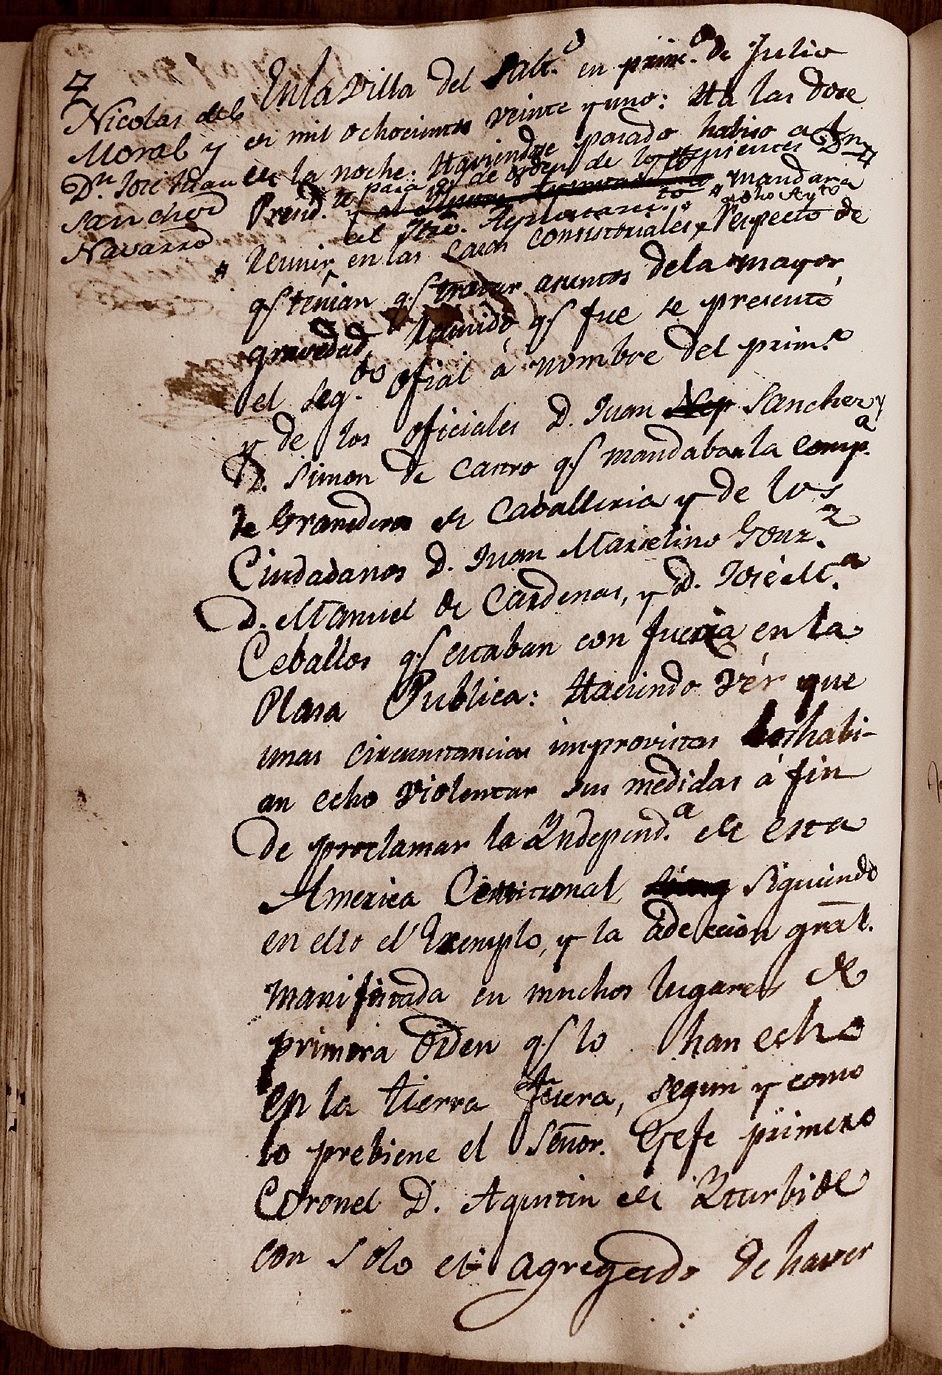 Nicolas del
Moral y
Dn. José Juan
Sanchez
Navarro
En la Villa del Salt.o en prim.o de Julio
de mil ochocientos veinte y uno: Ha las doce
de la noche. Haviendose pasado habiso a
Presid.te para qe de orden de los
el Itre. Ayuntam.to mandara
Reunir en las Casas Consistoriales, Respecto de
qe tenian qe tratar asuntos de la mayor
gravedad, Reunido qe fue se presentó
el Seg.do Ofial á nombre del prim.o
y de los oficiales D. Juan Nep Sanchez y
D. Simon de Castro qe mandaban la comp.a
de Granaderos de Caballeria y de los
Ciudadanos D. Juan Marcelino Gonz.z
D. Manuel de Cardenas, y D. José M.a
Ceballos qe estaban con fuerza en la
Plasa Publica: Haciendo vér que
unas circunstancias improvistas los habi-
an echo violentar sus medidas á fin
de proclamar la Independ.a de esta
America Ceptentrional, Siguiendo
en esto el Exemplo, y la adeccion gral.
manifestada en muchos lugares de
primera Orden qe lo han echo
en la tierra fuera, segun y como
lo prebiene el Señor. Gefe primero
Coronel D. Agustin de Yturbide
con solo el agregado de haver